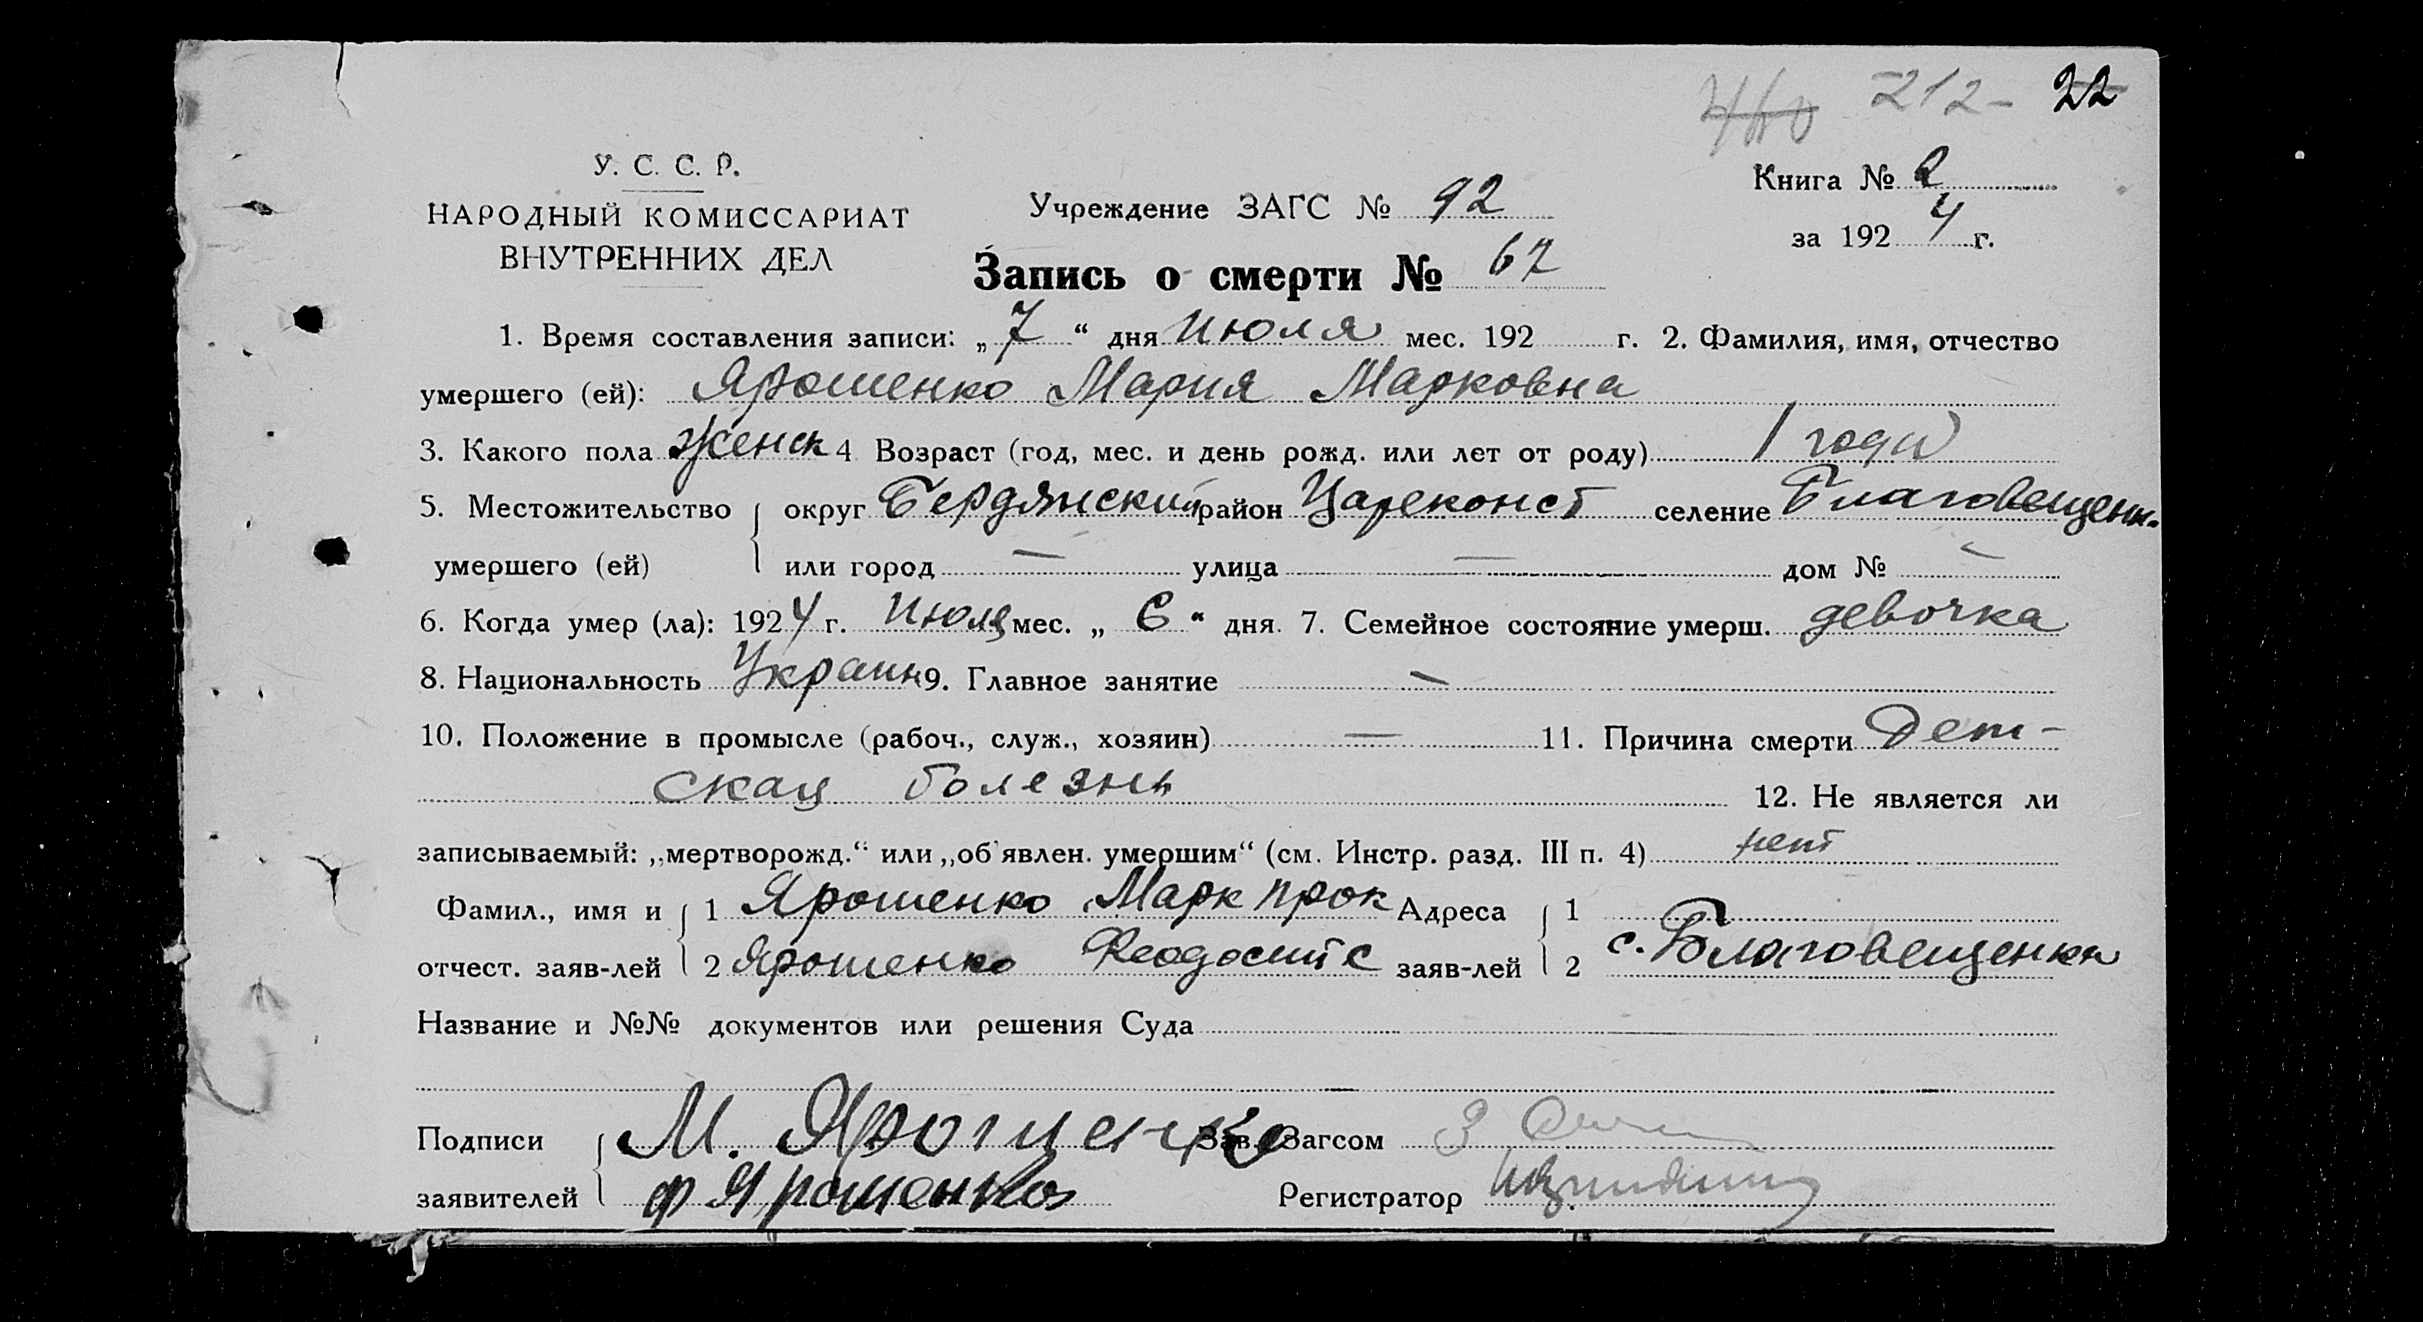 212- 22
У. С. С. Р.
НАРОДНЫЙ КОМИССАРИАТ
ВНУТРЕННИХ ДЕЛ
Учреждение ЗАГС № 92
Книга № 2
за 192 4 г.
Запись о смерти № 67
1. Время составления записи: „ 7 “ дня июля мес. 192 г. 2. Фамилия, имя, отчество
умершего (ей): Ярошенко Мария Марковна
3. Какого пола женск 4 Возраст (год, мес. и день рожд. или лет от роду) 1 года
5. Местожительство округ Бердянский район Цареконст селение Благовещенк.
умершего (ей) или город — улица — дом № —
6. Когда умер (ла): 192 4 г. июля мес. „ 6 “ дня. 7. Семейное состояние умерш. девочка
8. Национальность Украин 9. Главное занятие —
10. Положение в промысле (рабоч., служ., хозяин) — 11. Причина смерти Дет-
ская болезнь 12. Не является ли
записываемый: „мертворожд.“ или „об'явлен. умершим“ (см. Инстр. разд. III п. 4) нет
Фамил., имя и 1 Ярошенко Марк Прок Адреса 1
отчест. заяв-лей 2 Ярошенко Феодосит С заяв-лей 2 с. Благовещенка
Название и №№ документов или решения Суда
Подписи М. Ярошенко Зав. Загсом
заявителей Ф Ярошенко Регистратор